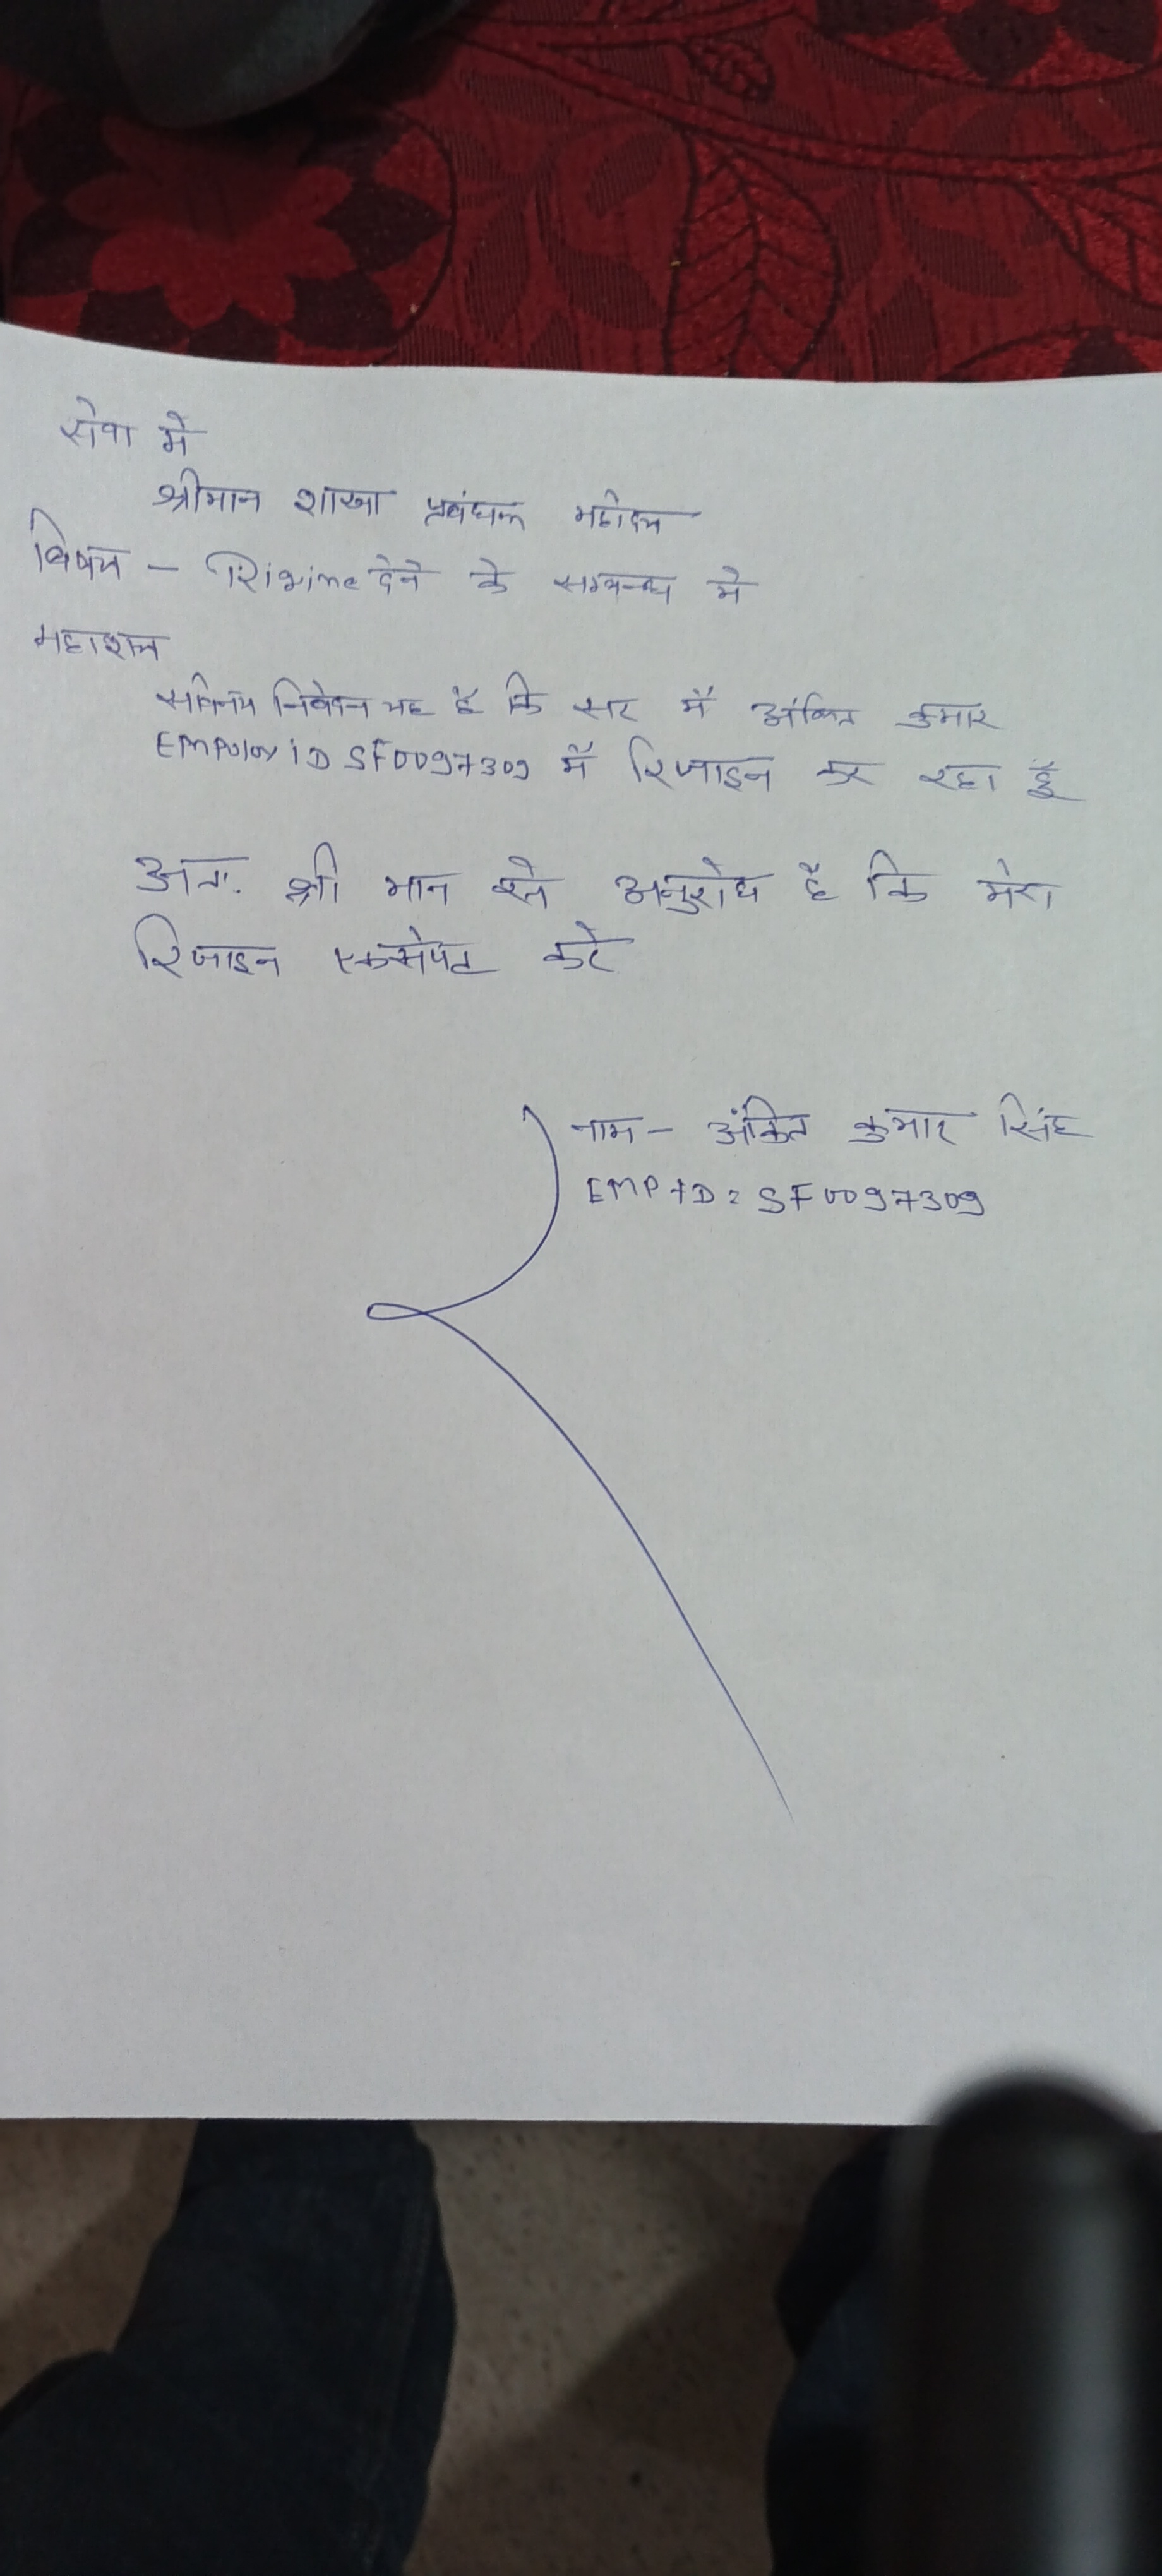 सेवा में
श्रीमान शाखा प्रबंधक महोदय
विषय - Risine देने के सम्बन्ध मे
महाशय
सविनय निवेदन यह है कि सर मैं अंकित कुमार
EMPloy iD SF0097309 मैं रिजाइन कर रहा हूँ
अतः श्री मान से अनुरोध है कि मेरा
रिजाइन एक्सेपट करे
नाम - अंकित कुमार सिंह
EMP ID: SF0097309